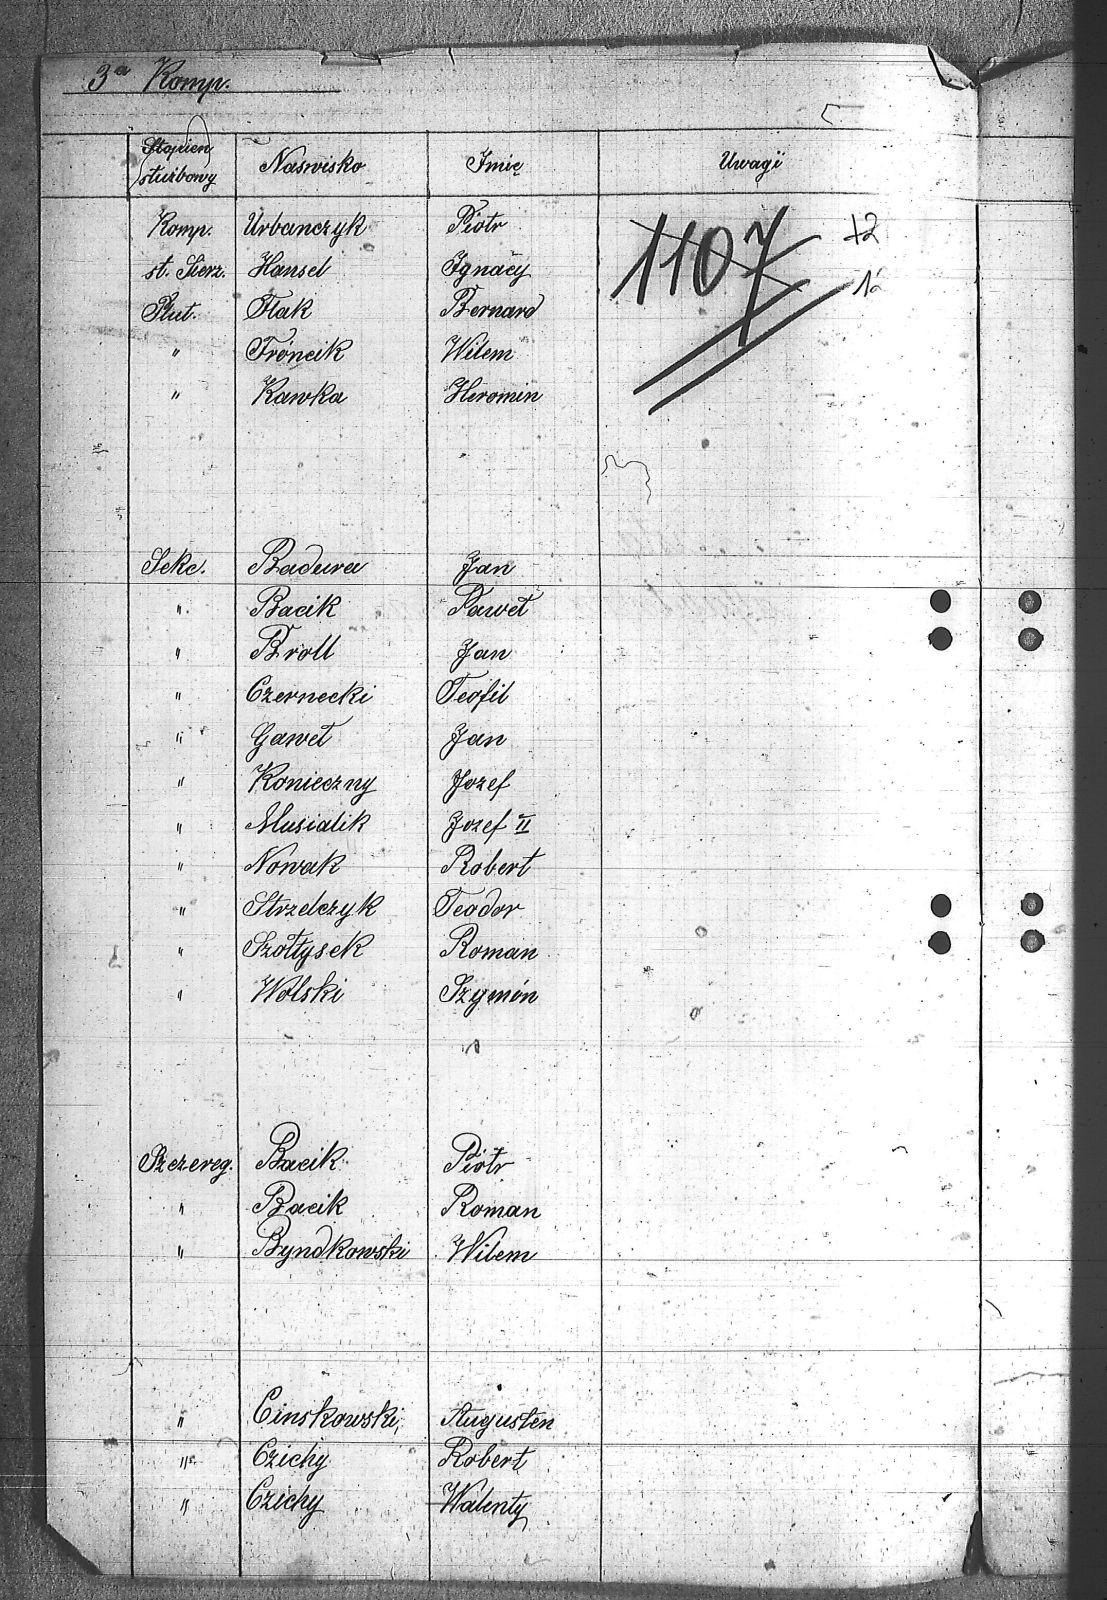 3a Komp.
Stopień służbowy Naswisko Imię Uwagi
Komp. Urbanczyk Piotr
st. Sierz. Hansel Ignacy
Plut. Flak Bernard
" Fróncik Wilem
" Kawka Heromin
1107
12
Sekc. Badura Jan
" Bacik Paweł
" Broll Jan
" Czernecki Teofil
" Gaweł Jan
" Konieczny Jozef
" Musialik Jozef II
" Nowak Robert
" Strzelczyk Teodor
" Szołtysek Roman
" Wolski Szymón
Szczereg. Bacik Piotr
" Bacik Roman
" Byndkowski Wilem
" Cinskowski, Augusten
" Czichy Robert
" Czichy Walenty